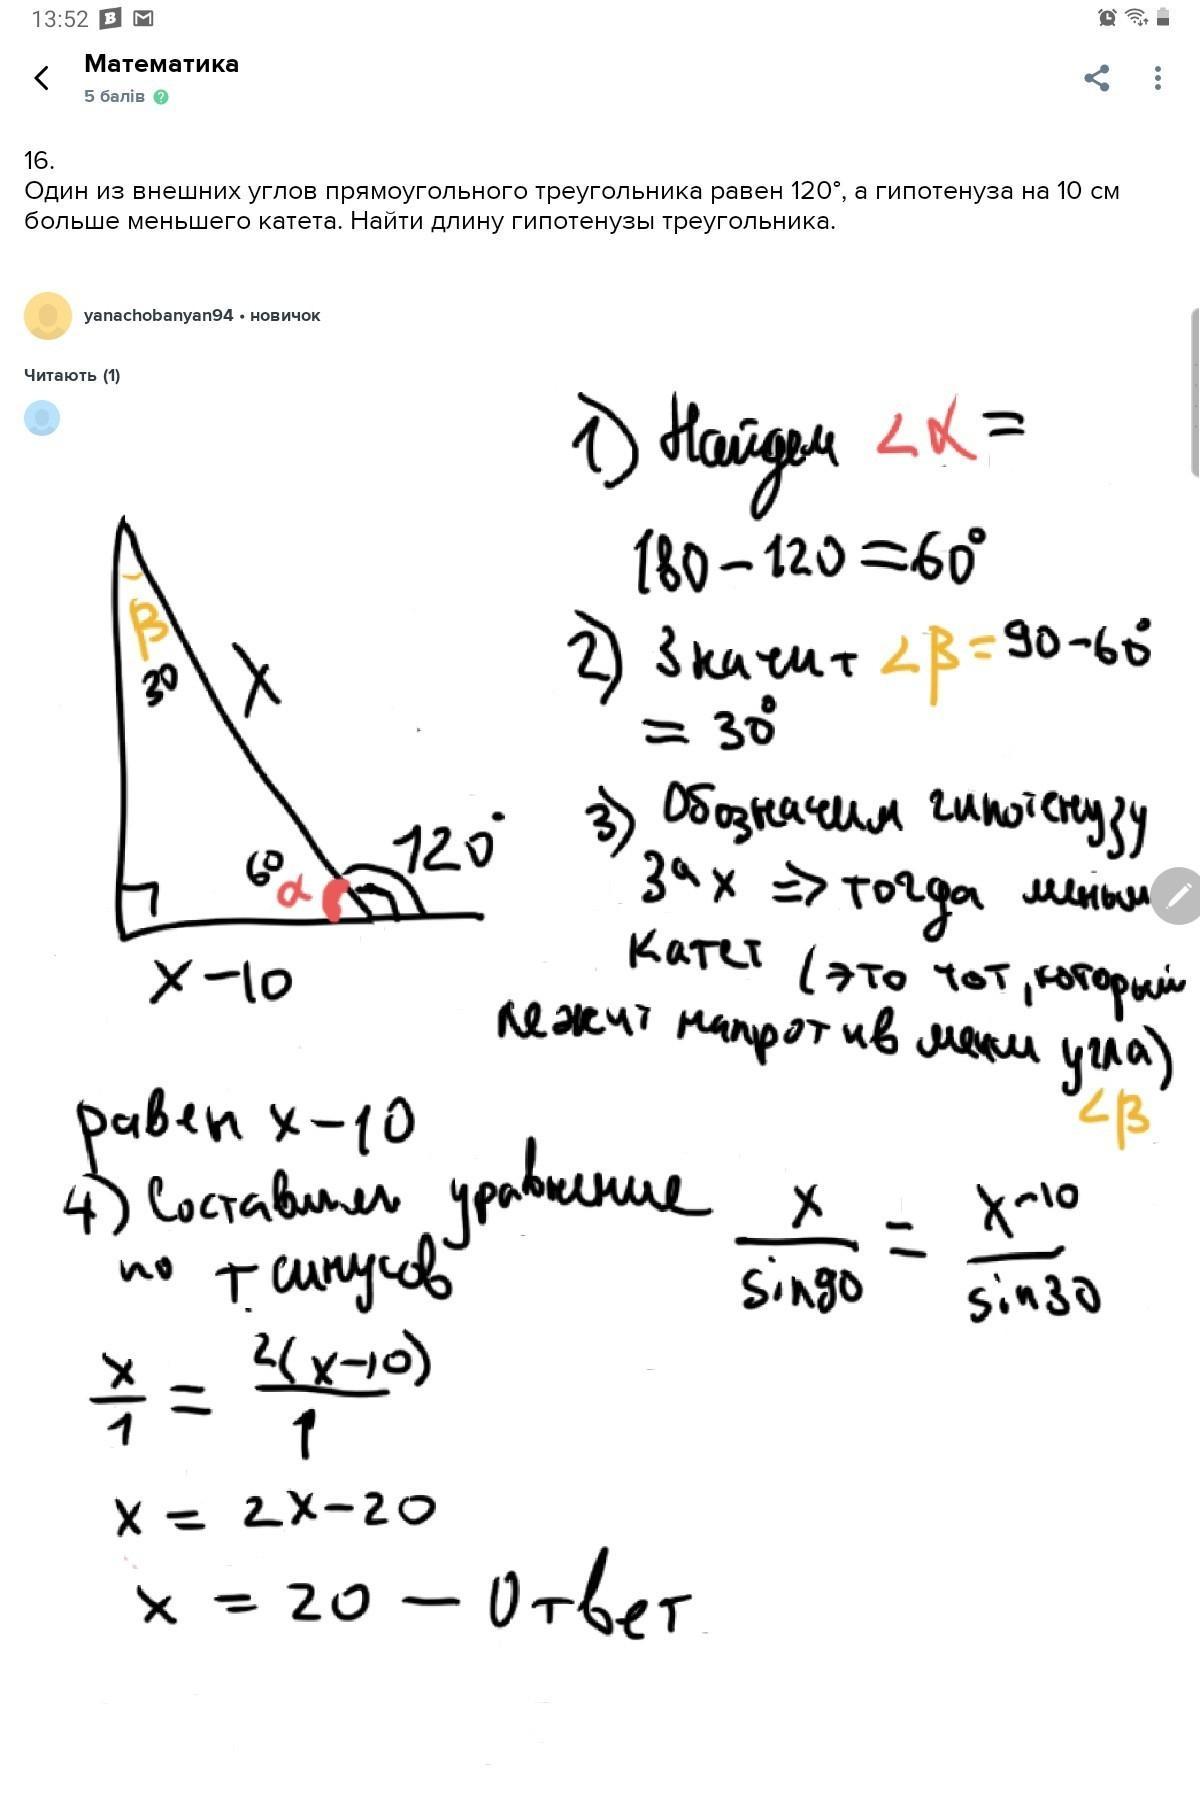 13:52
Математика
5 балів
16.
Один из внешних углов прямоугольного треугольника равен 120°, а гипотенуза на 10 см
больше меньшего катета. Найти длину гипотенузы треугольника.
yanachobanyan94 • новичок
Читають (1)
1) Найдем ∠α =
180 - 120 = 60°
2) Значит ∠β = 90 - 60°
= 30°
3) Обозначим гипотенузу
за x => тогда меньш
катет (это тот, который
лежит напротив меньш угла)
∠β
β
30
X
60
α
120°
x - 10
равен x - 10
4) Составим уравнение
по т. синусов
x/sin90 = x-10/sin30
x/1 = 2(x-10)/1
x = 2x - 20
x = 20 - Ответ